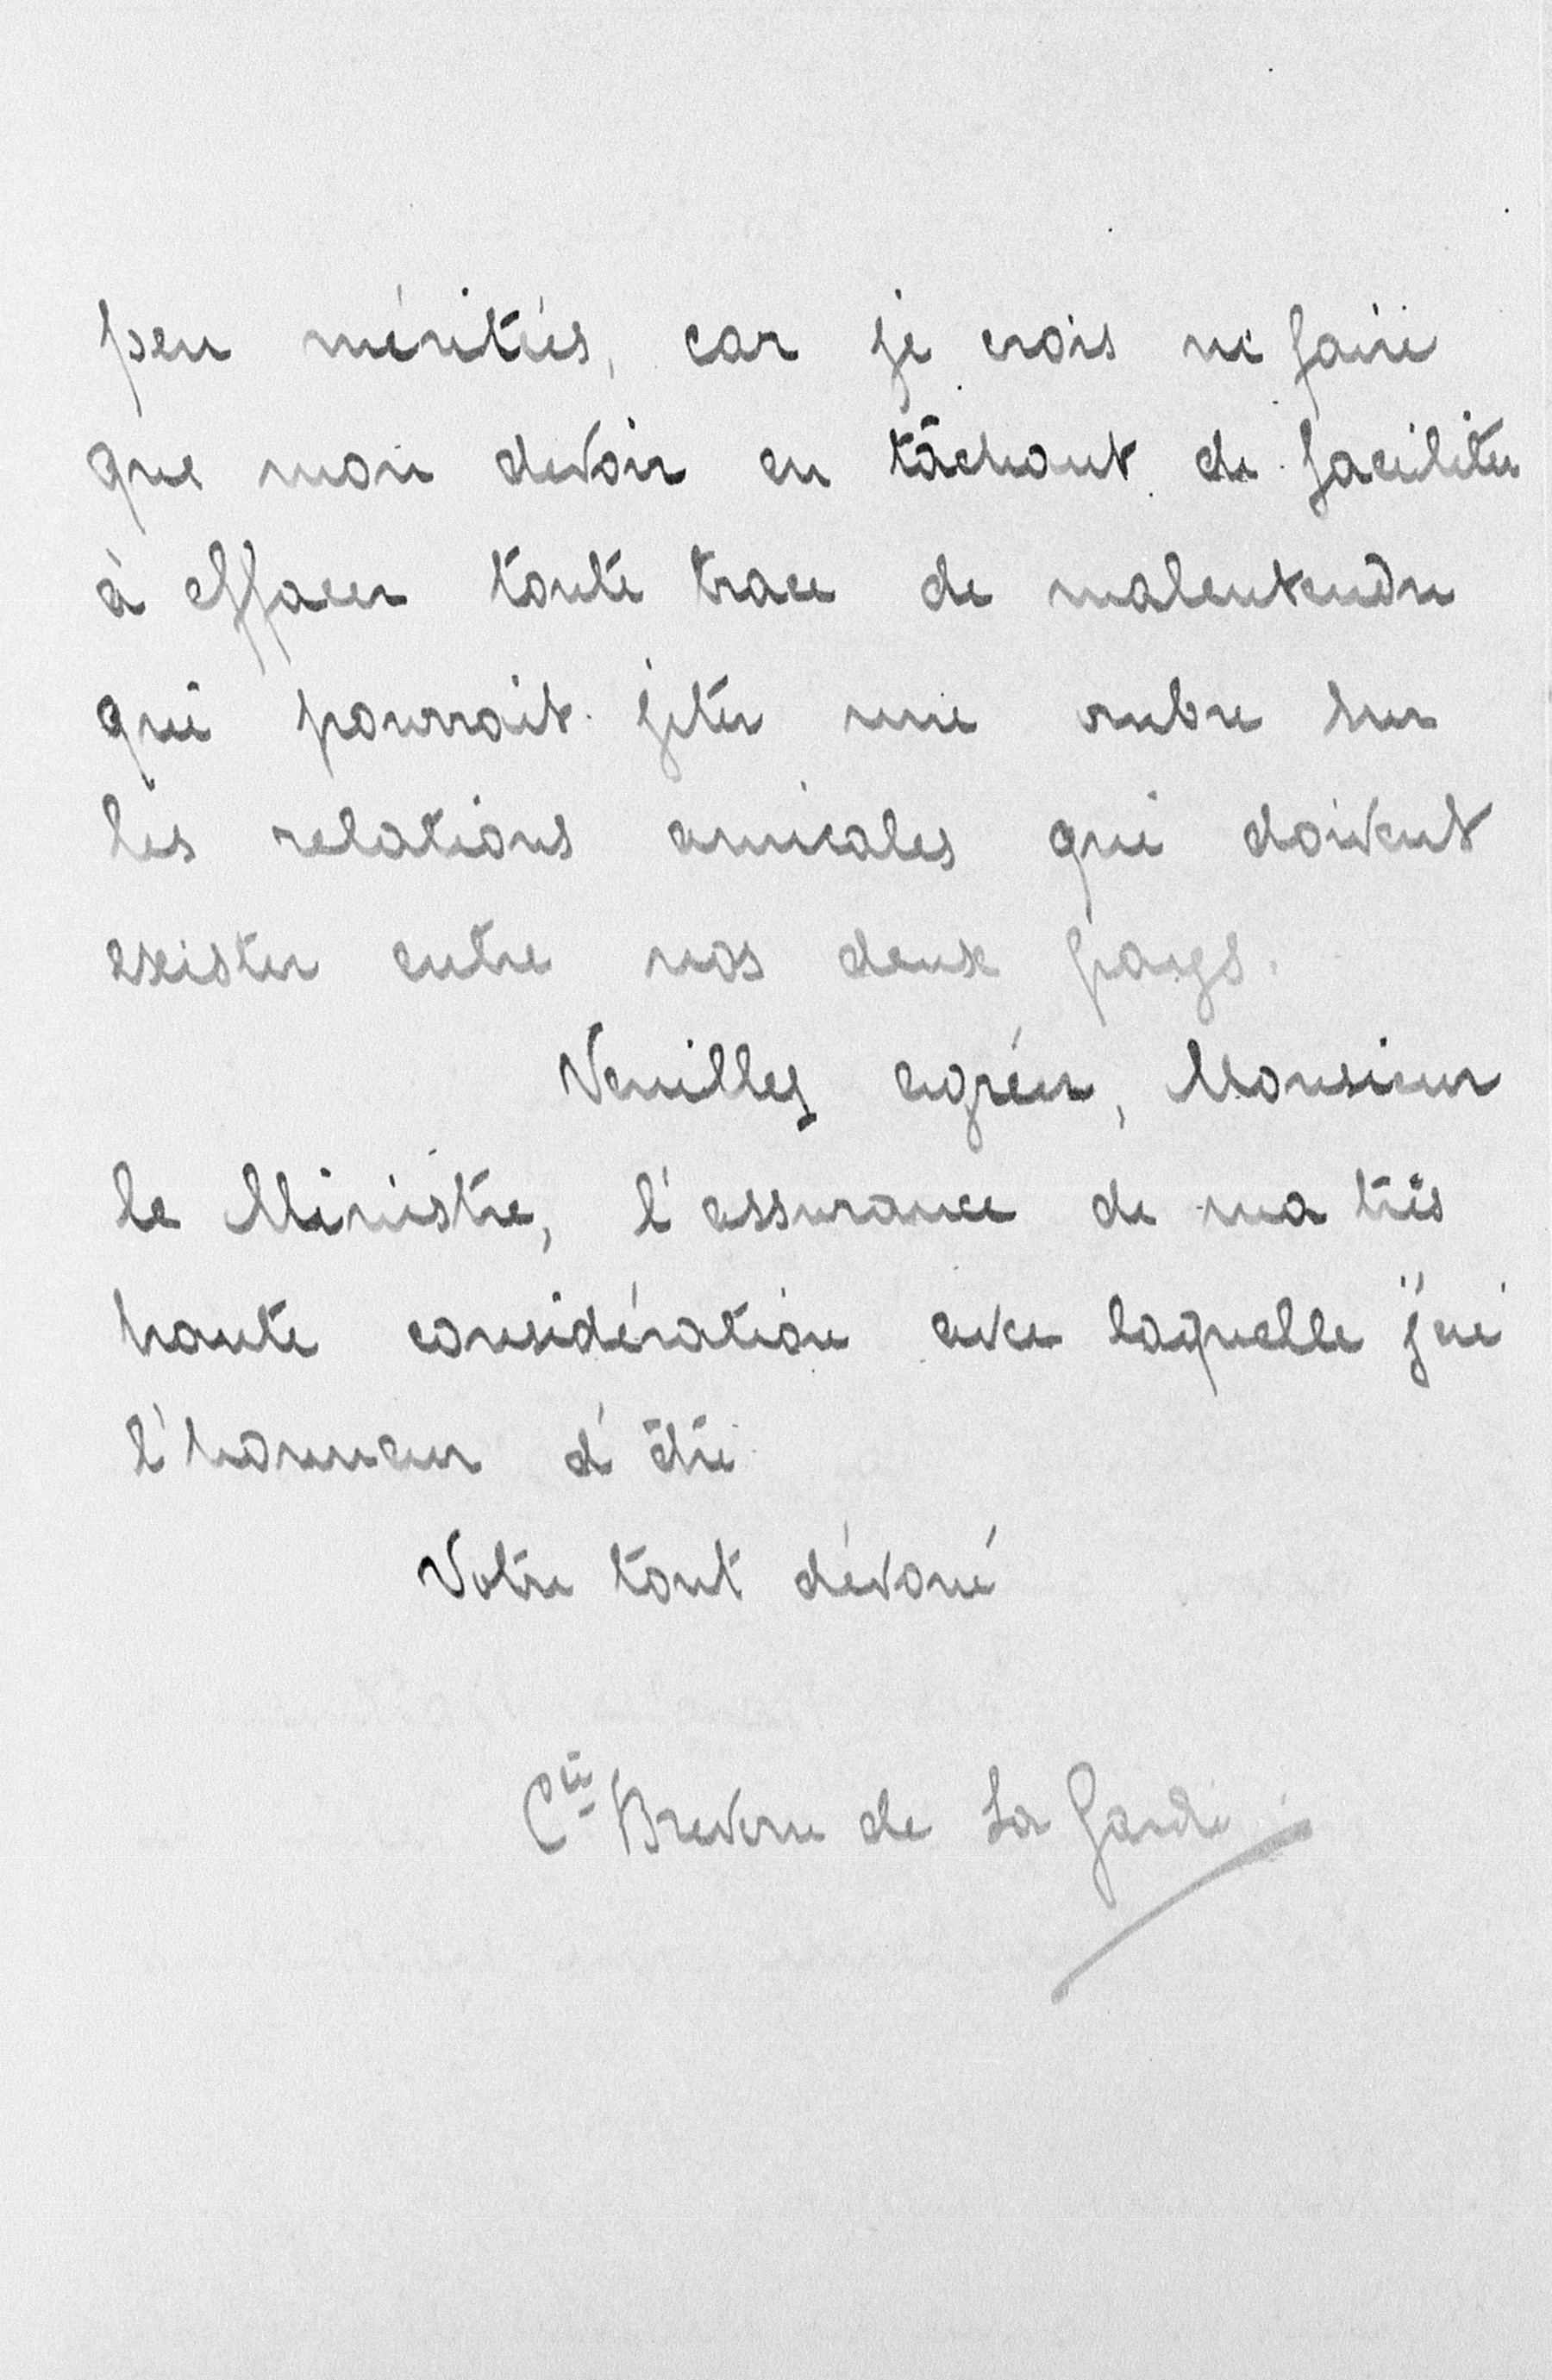 peu mérités, car je crois ne faire
que mon devoir en tâchant de faciliter
à effacer toute trace de malentendu
qui pourrait jeter une ombre sur
les relations amicales qui doivent
exister entre nos deux pays.
Veuillez agréer, Monsieur
le Ministre, l'assurance de ma très
haute considération avec laquelle j'ai
l'honneur d'être
Votre tout dévoué
Cte Brevern de La Gardie